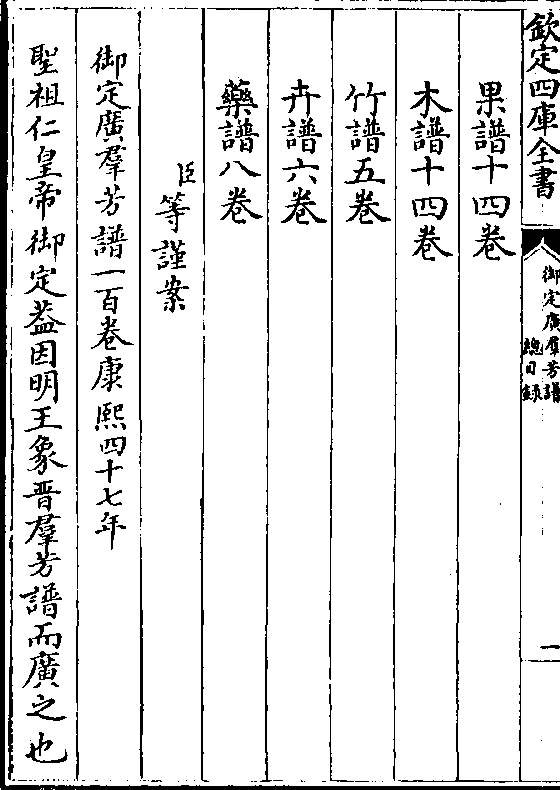 欽定四庫全書
御定廣羣芳譜
總目録
一
果譜十四卷
木譜十四卷
竹譜五卷
卉譜六卷
藥譜八卷
臣等謹案
御定廣羣芳譜一百卷康熙四十七年
聖祖仁皇帝御定葢因明王象晋羣芳譜而廣之也